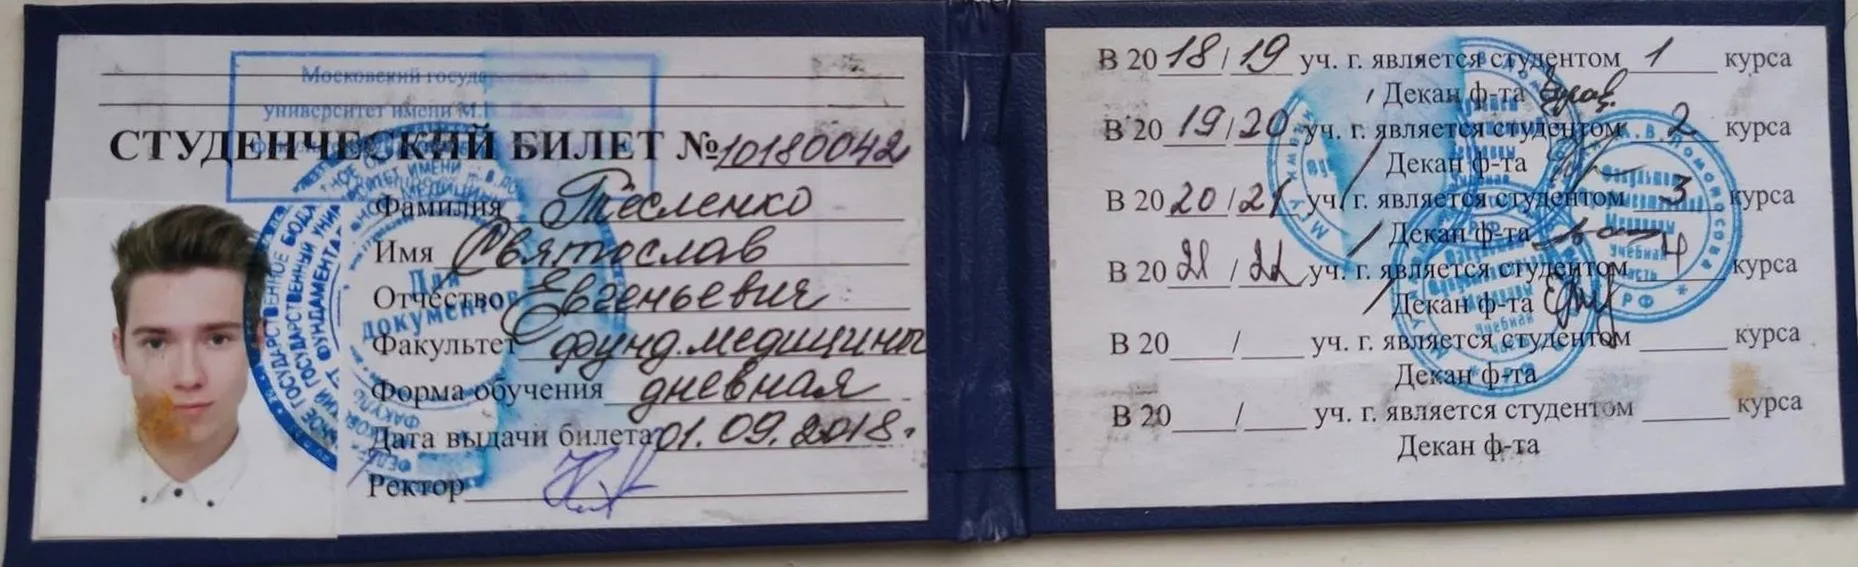 Московский государственный
университет имени М.В.
СТУДЕНЧЕСКИЙ БИЛЕТ № 10180042
Фамилия Тесленко
Имя Святослав
Отчество Евгеньевич
Для документов
Факультет фунд. медицины
Форма обучения дневная
Дата выдачи билета 01.09.2018.
Ректор
В 2018/19 уч. г. является студентом 1 курса
Декан ф-та
В 2019/20 уч. г. является студентом 2 курса
Декан ф-та
В 2020/21 уч. г. является студентом 3 курса
Декан ф-та
В 2021/22 уч. г. является студентом 4 курса
Декан ф-та
В 20___/___ уч. г. является студентом ___ курса
Декан ф-та
В 20___/___ уч. г. является студентом ___ курса
Декан ф-та